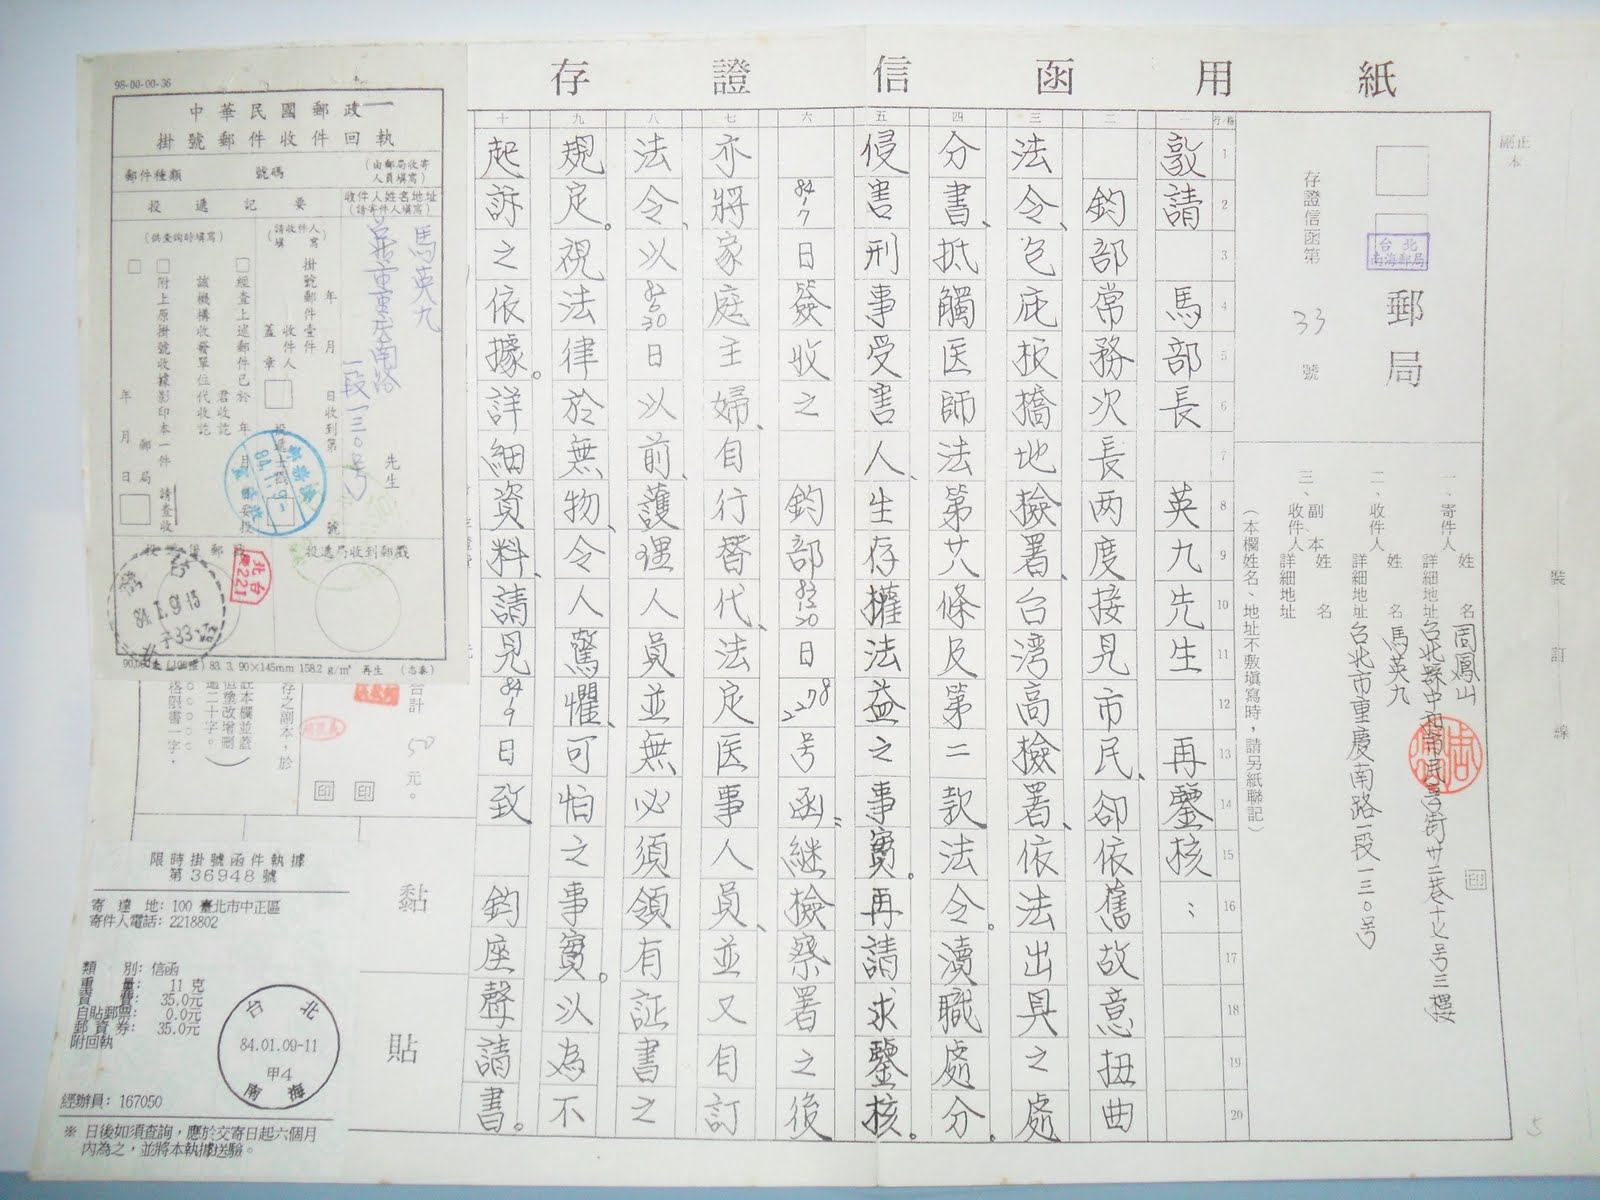 存證信函用紙
正本
副本
郵局
台北
南海郵局
存證信函第 33 號
一、寄件人 姓名 周鳳山
詳細地址
二、收件人 姓名 馬英九
詳細地址 台北市重慶南路一段一三0号
三、副本收件人 姓名
詳細地址
(本欄姓名、地址不敷填寫時,請另紙聯記)
印
裝訂線
行/格 一 二 三 四 五 六 七 八 九 十
1 2 3 4 5 6 7 8 9 10 11 12 13 14 15 16 17 18 19 20
敦請 馬部長 英九先生 再鑒核:
鈞部常務次長两度接見市民、卻依舊故意扭曲
法令、包庇板橋地檢署、台湾高檢署、依法出具之處
分書、抵觸医師法第廿八條及第二款法令。瀆職處分。
侵害刑事受害人、生存權法益之事實。再請求鑒核。
84-1-7日發收之 鈞部83-12-30日22778号函、継檢察署之後
亦將家庭主婦、自行督代、法定医事人員、並又自訂
法令、以82-5-30日以前、護理人員並無必須領有証書之
規定。視法律於無物、令人驚懼、可怕之事實。以為不
起訴之依據。詳細資料、請見84-1-9日致 鈞座聲請書。
98-00-00-36
中華民國郵政
掛號郵件收件回執
郵件種類 號碼 (由郵局收寄人員填寫)
投遞記要
收件人姓名地址
(請寄件人填寫)
馬英九 先生
台北市重慶南路
一段一三0号
(請收件人填寫)
掛號郵件壹件
年 月 日收到第 號
收件人蓋章
投遞士戳
(供查詢時填寫)
經查上述郵件已於 年 月 日妥投
該機構收發單位 君收訖
代收訖
附上原掛號收據影印本一件 請查收
郵局
年 月 日
投遞後郵戳
投遞局收到郵戳
84.1.9
北台
221
台北
90,000束(100張) 83. 3. 90×145mm 158.2 g/m² 再生 (志泰)
合計 50 元。
存之副本,於
註本欄並蓋
但塗改增刪)
過二十字。
格限書一字,
印 印
黏
貼
限時掛號函件執據
第 36948 號
寄達地: 100 臺北市中正區
寄件人電話: 2218802
類別: 信函
重量: 11 克
資費: 35.0元
自貼郵票: 0.0元
郵資券: 35.0元
附回執
台北
84.01.09-11
甲4
南海
經辦員: 167050
※ 日後如須查詢,應於交寄日起六個月
內為之,並將本執據送驗。
5